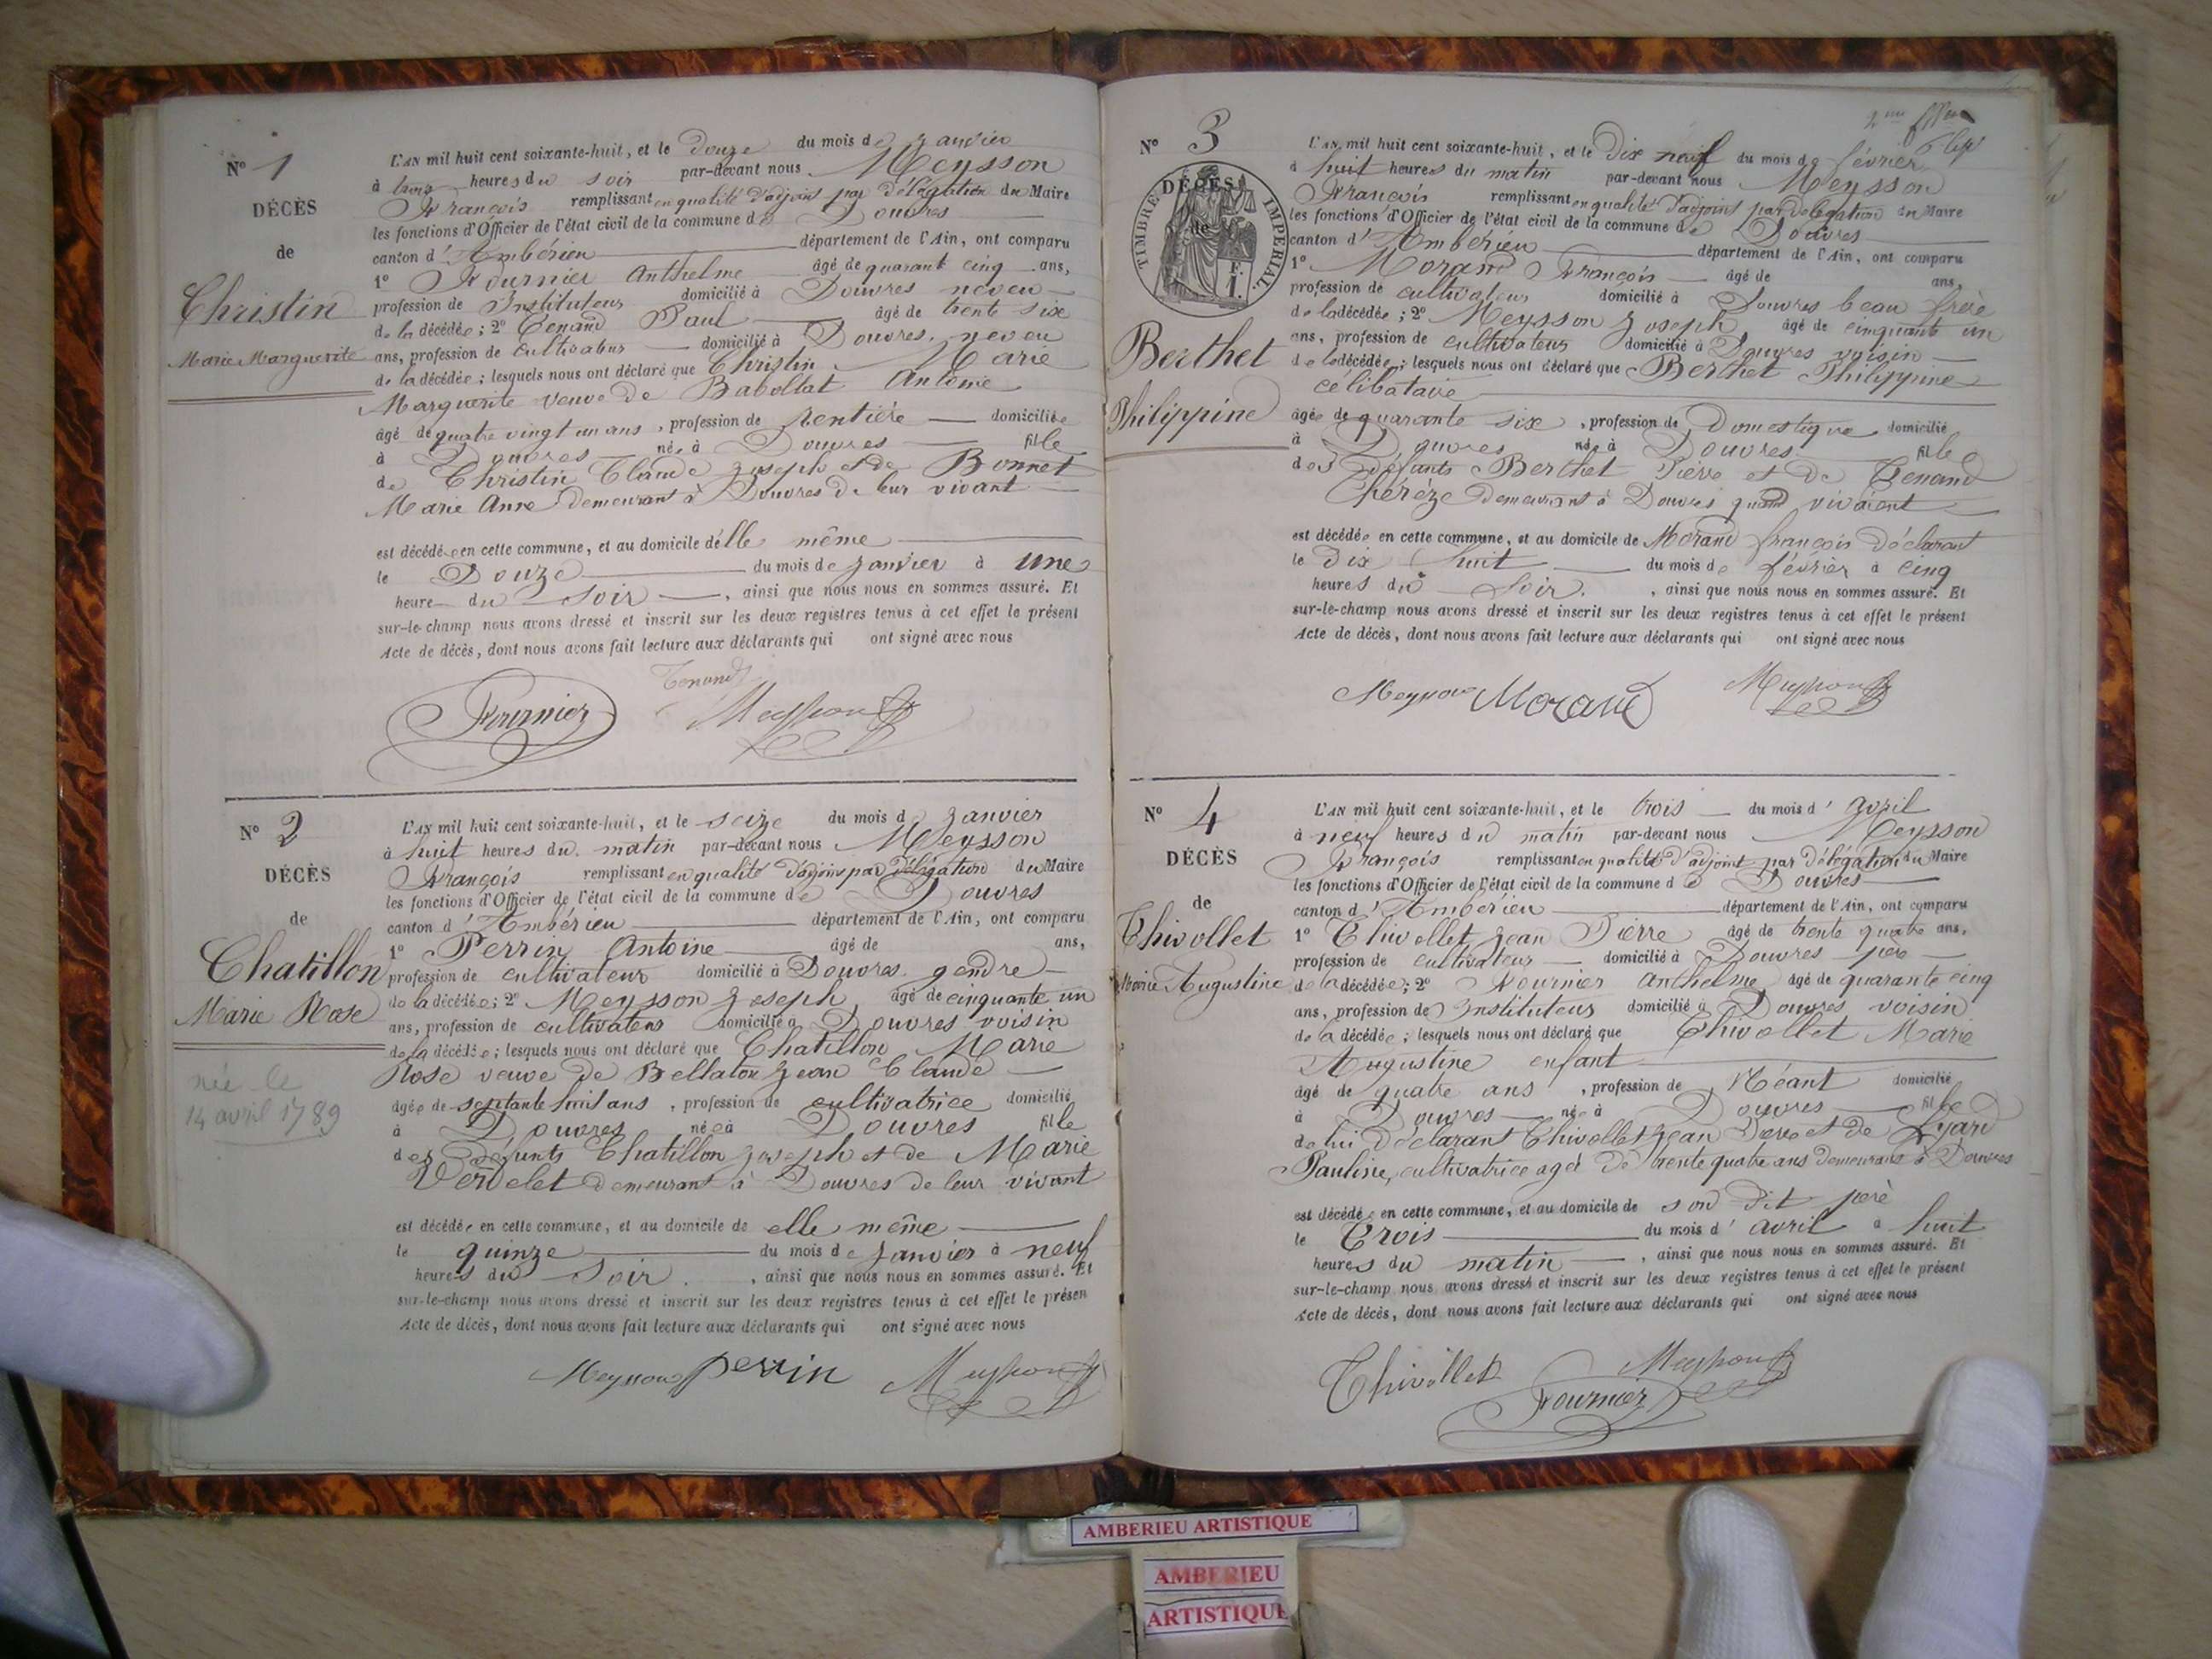 N° 1
DÉCÈS
de
Christin
Marie Marguerite
L'AN mil huit cent soixante-huit, et le Douze du mois de Janvier
à heures du soir par-devant nous Meysson
François remplissant en qualité d'adjoint par délégation du Maire
les fonctions d'Officier de l'état civil de la commune de Douvres
canton d'Ambérieu département de l'Ain, ont comparu
1° Fournier Anthelme âgé de quarant cinq ans,
profession de Instituteur domicilié à Douvres neveu
de la décédée; 2° Tenand Paul âgé de trente six
ans, profession de cultivateur domicilié à Douvres, neveu
de la décédée; lesquels nous ont déclaré que Christin Marie
Marguerite veuve de Babollat Antoine
âgé de quatre vingt un ans, profession de Rentière domiciliée
à Douvres née à Douvres fille
de Christin Claude Joseph et de Bonnet
Marie Anne demeurant à Douvres de leur vivant
est décédée en cette commune, et au domicile d'elle même
le Douze du mois de Janvier à une
heure du Soir, ainsi que nous nous en sommes assuré. Et
sur-le-champ nous avons dressé et inscrit sur les deux registres tenus à cet effet le présent
Acte de décès, dont nous avons fait lecture aux déclarants qui ont signé avec nous
Tenand
Fournier Meysson
N° 2
DÉCÈS
de
Chatillon
Marie Rose
née le
14 avril 1789
L'AN mil huit cent soixante-huit, et le seize du mois de Janvier
à huit heures du matin par-devant nous Meysson
François remplissant en qualité d'adjoint par délégation du Maire
les fonctions d'Officier de l'état civil de la commune de Douvres
canton d'Ambérieu département de l'Ain, ont comparu
1° Perrin Antoine âgé de ans,
profession de cultivateur domicilié à Douvres gendre
de la décédée; 2° Meysson Joseph, âgé de cinquante un
ans, profession de cultivateur domicilié à Douvres voisin
de la décédée; lesquels nous ont déclaré que Chatillon Marie
Rose veuve de Bellaton Jean Claude
âgée de septante huit ans, profession de cultivatrice domicilié
à Douvres née à Douvres fille
des défunts Chatillon Joseph et de Marie
demeurant à Douvres de leur vivant
est décédée en cette commune, et au domicile de elle même
le quinze du mois de Janvier à neuf
heures du Soir, ainsi que nous nous en sommes assuré. Et
sur-le-champ nous avons dressé et inscrit sur les deux registres tenus à cet effet le présen
Acte de décès, dont nous avons fait lecture aux déclarants qui ont signé avec nous
Meysson perrin Meysson
2me
N° 3
DÉCÈS
de
TIMBRE IMPÉRIAL
F.
1.
Berthet
Philippine
L'AN mil huit cent soixante-huit, et le Dix neuf du mois de février
à huit heures du matin par-devant nous Meysson
François remplissant en qualité d'adjoint par délégation du Maire
les fonctions d'Officier de l'état civil de la commune de Douvres
canton d'Ambérieu département de l'Ain, ont comparu
1° Morand François âgé de ans,
profession de cultivateur domicilié à Douvres beau frère
de la décédée; 2° Meysson Joseph, âgé de cinquante un
ans, profession de cultivateur domicilié à Douvres voisin
de la décédée; lesquels nous ont déclaré que Berthet Philippine
célibataire
âgée de quarante six, profession de Domestique domicilié
à Douvres née à Douvres fille
des défunts Berthet Pière et de Tenand
Thérèze demeurant à Douvres quand vivaient
est décédée en cette commune, et au domicile de Morand françois déclarant
le Dix huit du mois de février à cinq
heures du Soir, ainsi que nous nous en sommes assuré. Et
sur-le-champ nous avons dressé et inscrit sur les deux registres tenus à cet effet le présent
Acte de décès, dont nous avons fait lecture aux déclarants qui ont signé avec nous
Meysson Morand Meysson
N° 4
DÉCÈS
de
Thivollet
Marie Augustine
L'AN mil huit cent soixante-huit, et le trois du mois d'avril
à neuf heures du matin par-devant nous Meysson
François remplissant en qualité d'adjoint par délégation du Maire
les fonctions d'Officier de l'état civil de la commune de Douvres
canton d'Ambérieu département de l'Ain, ont comparu
1° Thivollet Jean Pierre âgé de trente quatre ans,
profession de cultivateur domicilié à Douvres père
de la décédée; 2° Fournier Anthelme âgé de quarante cinq
ans, profession de Instituteur domicilié à Douvres voisin
de la décédée; lesquels nous ont déclaré que Thivollet Marie
Augustine enfant
âgé de quatre ans, profession de Néant domicilié
à Douvres née à Douvres fille
de lui déclarant Thivollet Jean Pierre et de Lyard
Pauline, cultivatrice agée de trente quatre ans demeurant à Douvres
est décédée en cette commune, et au domicile de son dit père
le Trois du mois d'avril à huit
heures du matin, ainsi que nous nous en sommes assuré. Et
sur-le-champ nous avons dressé et inscrit sur les deux registres tenus à cet effet le présent
Acte de décès, dont nous avons fait lecture aux déclarants qui ont signé avec nous
Thivollet Meysson
Fournier
AMBERIEU ARTISTIQUE
AMBERIEU
ARTISTIQUE